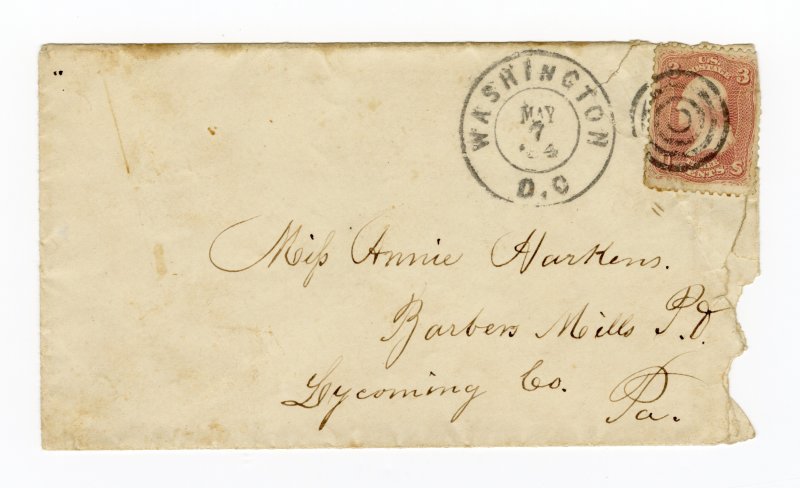 WASHINGTON
MAY
7
D.C
U.S.
3 3
CENTS
Miſs Annie Harkens.
Barbers Mills P.O.
Lycoming Co.
Pa.